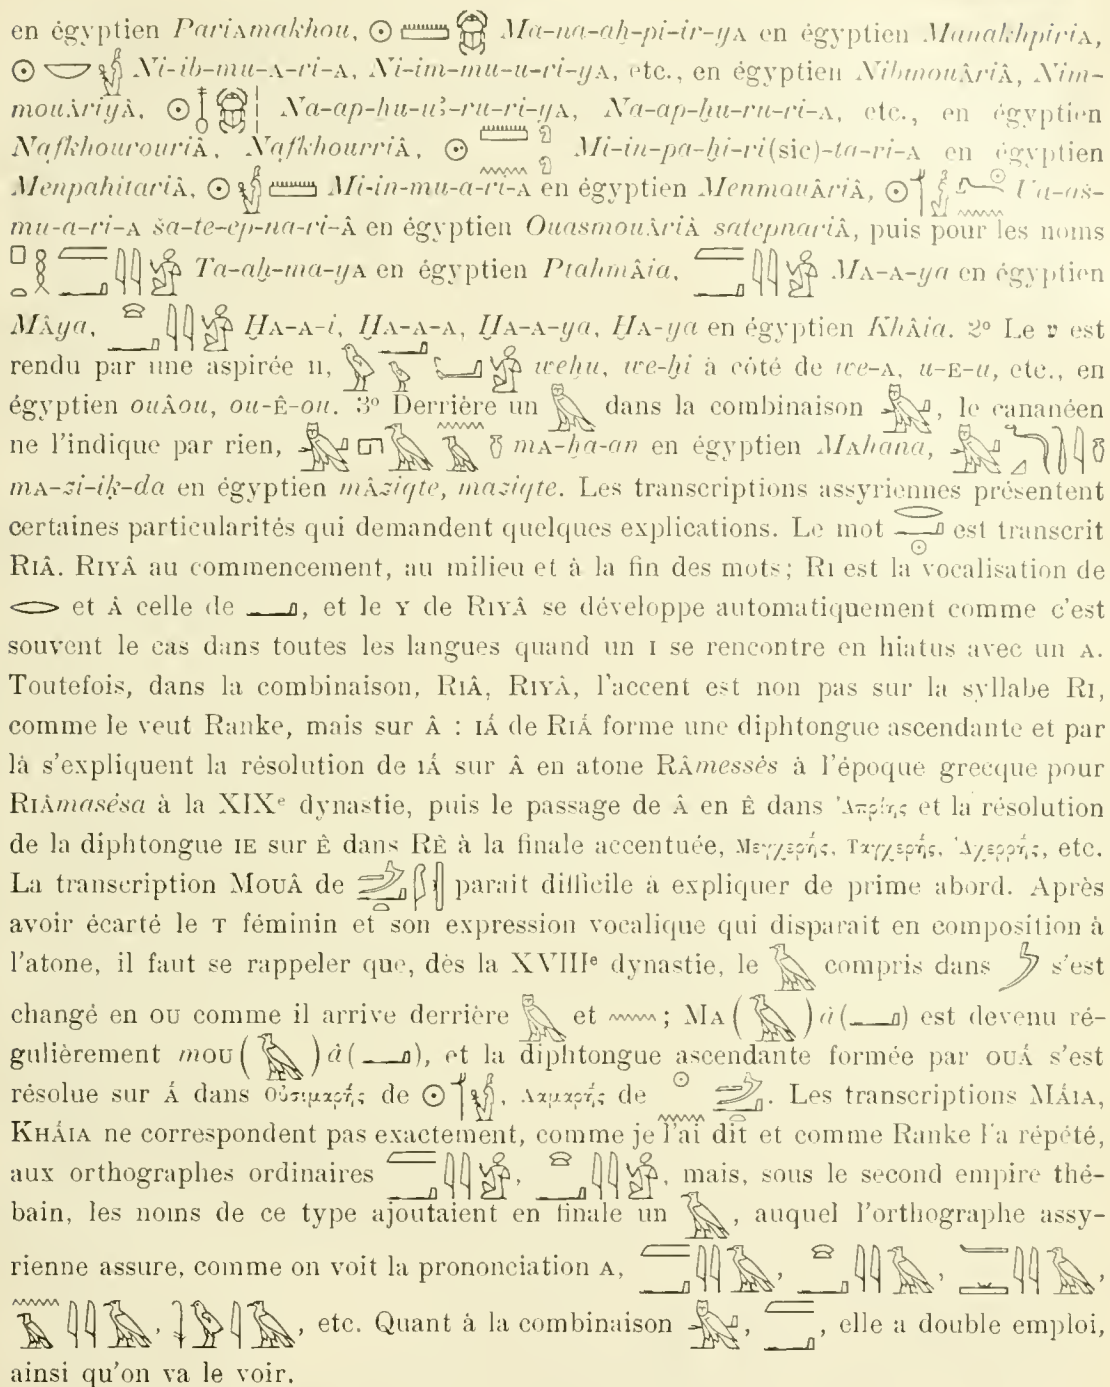 en égyptien Pariᴀmakhou, 𓇳𓏠𓆣 Ma-na-aḫ-pi-ir-yᴀ en égyptien Manakhpiriᴀ,
𓇳𓎟𓁦 Ni-ib-mu-ᴀ-ri-ᴀ, Ni-im-mu-u-ri-yᴀ, etc., en égyptien NibmouÂriÂ, Nim-
mouÂriyÂ, 𓇳𓄤𓆣𓏥 Na-ap-ḫu-u’-ru-ri-yᴀ, Na-ap-ḫu-ru-ri-ᴀ, etc., en égyptien
NafkhourouriÂ, NafkhourriÂ, 𓇳𓏠𓈖 Mi-in-pa-ḫi-ri(sic)-ta-ri-ᴀ en égyptien
MenpahitariÂ, 𓇳𓁦𓏠 Mi-in-mu-a-ri-ᴀ en égyptien MenmouÂriÂ, 𓇳𓄊𓁦𓍉𓇳𓈖 Ua-aš-
mu-a-ri-ᴀ ša-te-ep-na-ri-Â en égyptien OuasmouÂriÂ satepnariÂ, puis pour les noms
𓊪𓏏𓎛𓐝𓂝𓇋𓇋𓀀 Ta-aḫ-ma-yᴀ en égyptien PtahmÂia, 𓐝𓂝𓇋𓇋𓀀 Mᴀ-ᴀ-ya en égyptien
MÂya, 𓈍𓂝𓇋𓇋𓀀 Ḫᴀ-ᴀ-i, Ḫᴀ-ᴀ-ᴀ, Ḫᴀ-ᴀ-ya, Ḫᴀ-ya en égyptien KhÂia. 2º Le ע est
rendu par une aspirée ʜ, 𓅱𓂝𓅱𓂝𓀀 weḫu, we-ḫi à côté de we-ᴀ, u-ᴇ-u, etc., en
égyptien ouÂou, ou-Ê-ou. 3º Derrière un 𓅓 dans la combinaison 𓅓𓂝, le cananéen
ne l'indique par rien, 𓅓𓂝𓉔𓄿𓈖𓅱𓏊 mᴀ-ḫa-an en égyptien Mᴀhana,
mᴀ-zi-iḳ-da en égyptien mÂziqte, maziqte. Les transcriptions assyriennes présentent
certaines particularités qui demandent quelques explications. Le mot 𓂋𓂝𓇳 est transcrit
RɪÂ. RɪʏÂ au commencement, au milieu et à la fin des mots; Rɪ est la vocalisation de
𓂋 et Â celle de 𓂝, et le ʏ de RɪʏÂ se développe automatiquement comme c'est
souvent le cas dans toutes les langues quand un ɪ se rencontre en hiatus avec un ᴀ.
Toutefois, dans la combinaison, RɪÂ, RɪʏÂ, l'accent est non pas sur la syllabe Rɪ,
comme le veut Ranke, mais sur Â : ɪẤ de RɪẤ forme une diphtongue ascendante et par
là s'expliquent la résolution de ɪẤ sur Â en atone RÂmessès à l'époque grecque pour
RɪÂmasêsa à la XIXᵉ dynastie, puis le passage de Â en Ê dans Ἀπρίης et la résolution
de la diphtongue ɪᴇ sur Ê dans RÈ à la finale accentuée, Μεγχερής, Ταγχερής, Ἀχερρής, etc.
La transcription MᴏᴜÂ de 𓌳𓂝𓏏 parait difficile à expliquer de prime abord. Après
avoir écarté le ᴛ féminin et son expression vocalique qui disparait en composition à
l'atone, il faut se rappeler que, dès la XVIIIᵉ dynastie, le 𓄿 compris dans 𓌳 s'est
changé en ᴏᴜ comme il arrive derrière 𓅓 et 𓈖; Mᴀ(𓄿)â(𓂝) est devenu ré-
gulièrement mᴏᴜ(𓄿)â(𓂝), et la diphtongue ascendante formée par ᴏᴜẤ s'est
résolue sur Ấ dans Οὐσιμαρής de 𓇳𓄊𓁦, Λαμαρής de 𓇳𓈖𓌳𓂝. Les transcriptions MẤɪᴀ,
KʜẤɪᴀ ne correspondent pas exactement, comme je l'ai dit et comme Ranke l'a répété,
aux orthographes ordinaires 𓐝𓂝𓇋𓇋𓀀, 𓈍𓂝𓇋𓇋𓀀, mais, sous le second empire thé-
bain, les noms de ce type ajoutaient en finale un 𓄿, auquel l'orthographe assy-
rienne assure, comme on voit la prononciation ᴀ, 𓐝𓂝𓇋𓇋𓄿, 𓈍𓂝𓇋𓇋𓄿, 𓇋𓇋𓄿,
𓇋𓇋𓄿, 𓇋𓄿, etc. Quant à la combinaison 𓅓𓂝, 𓐝𓂝, elle a double emploi,
ainsi qu'on va le voir.